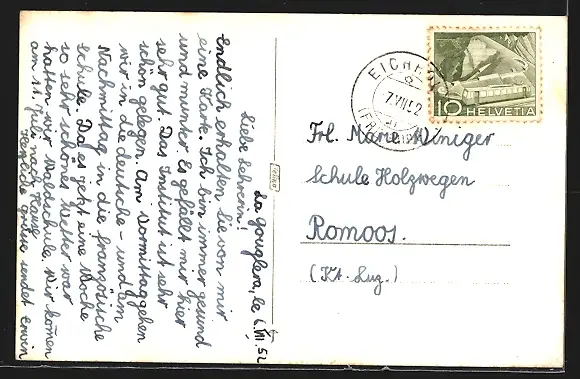 La Gouglera, le 6. VII. 52
Liebe Lehrerin!
Endlich erhalten Sie von mir
eine Karte. Ich bin immer gesund
und munter. Es gefällt mir hier
sehr gut. Das Institut ist sehr
schön gelegen. Am Vormittag gehen
wir in die deutsche- und am
Nachmittag in die französische
Schule. Da es jetzt eine Woche
so sehr schönes Wetter war
hatten wir Waldschule. Wir kommen
am 11. Juli nach Hause
Herzliche Grüsse sendet Erwin
EICHHOLZ
7.VII.52
(FRIBOURG)
10 HELVETIA
Frl. Marie Winiger
Schule Holzwegen
Romoos.
(Kt. Luz.)